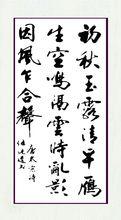 初秋玉露清早雁
出空鳴隔雲時亂影
因風乍合聲
唐太宗詩